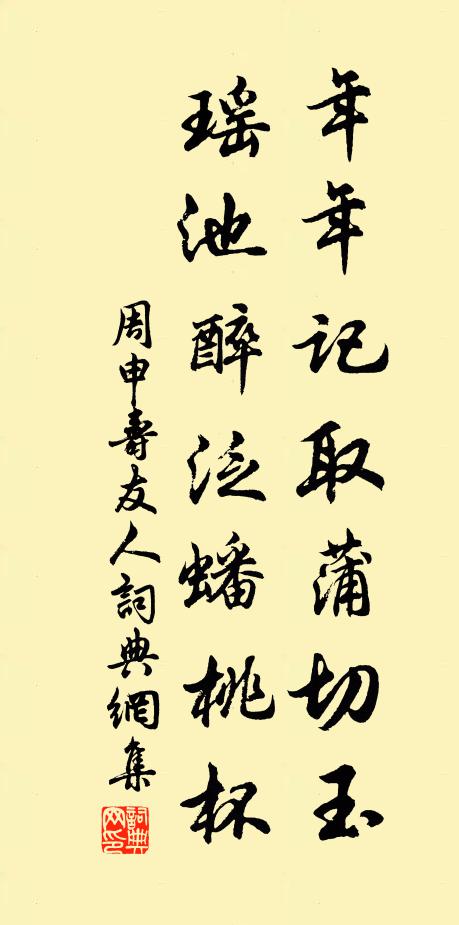 年年記取蒲切玉
瑤池醉泛蟠桃杯
周申壽友人詞典網集
詞典网印